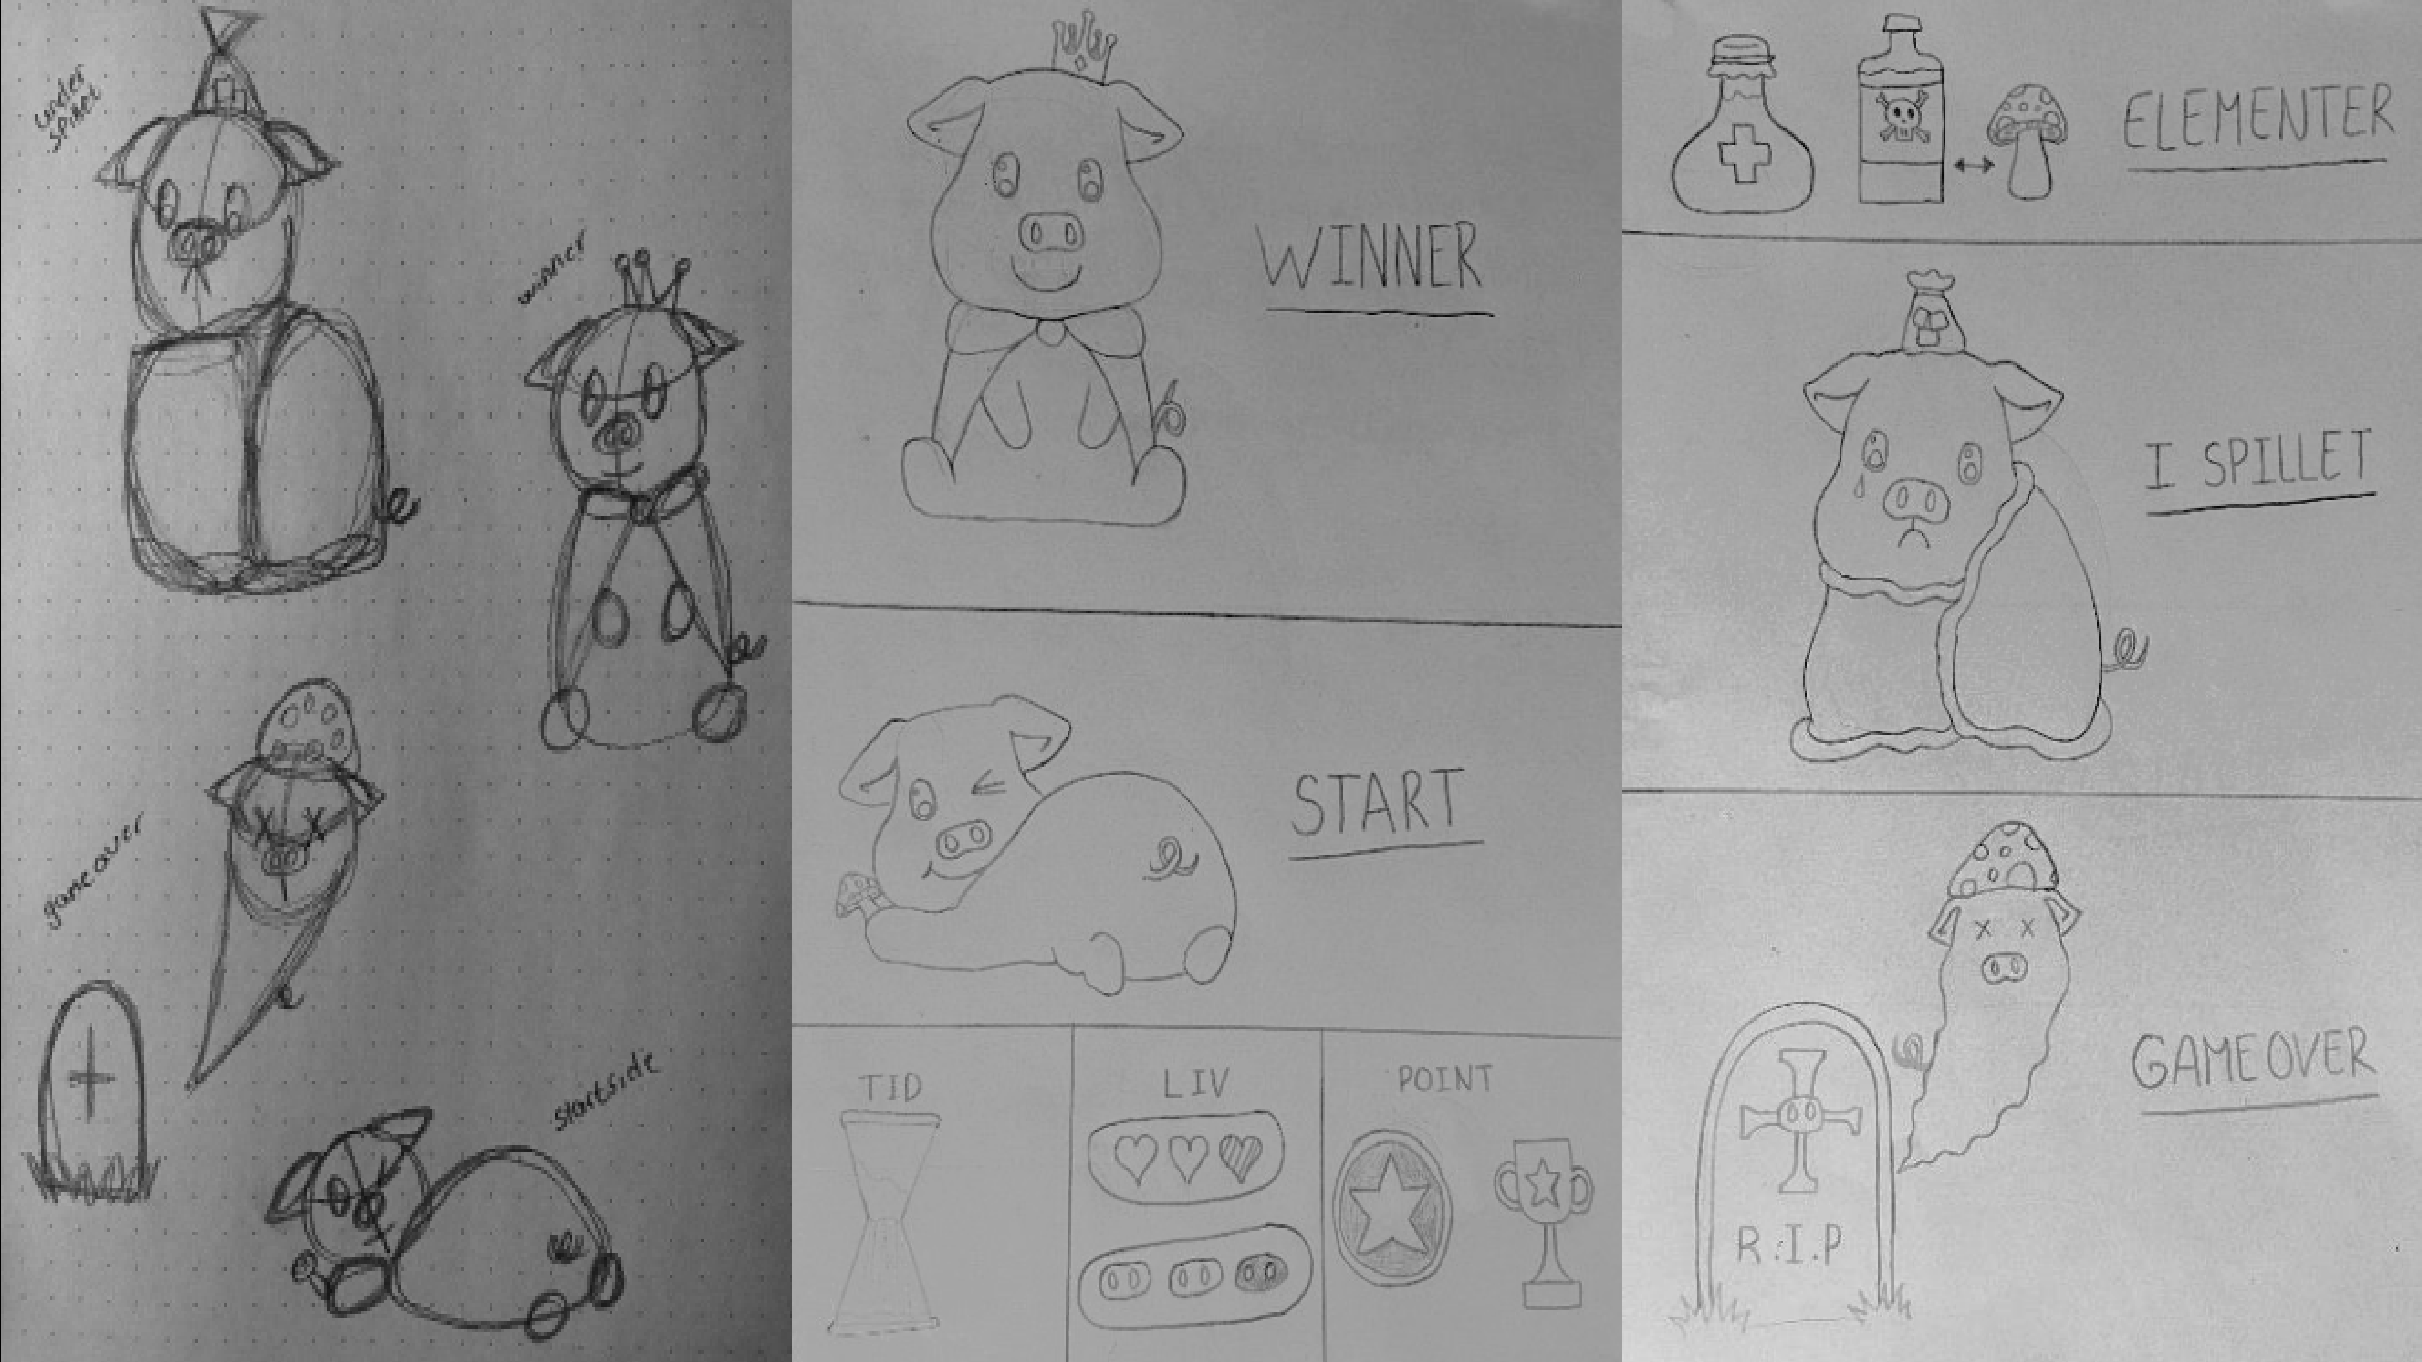 under
spillet
winner
game over
startside
WINNER
START
TID
LIV
POINT
ELEMENTER
I SPILLET
GAME OVER
R.I.P